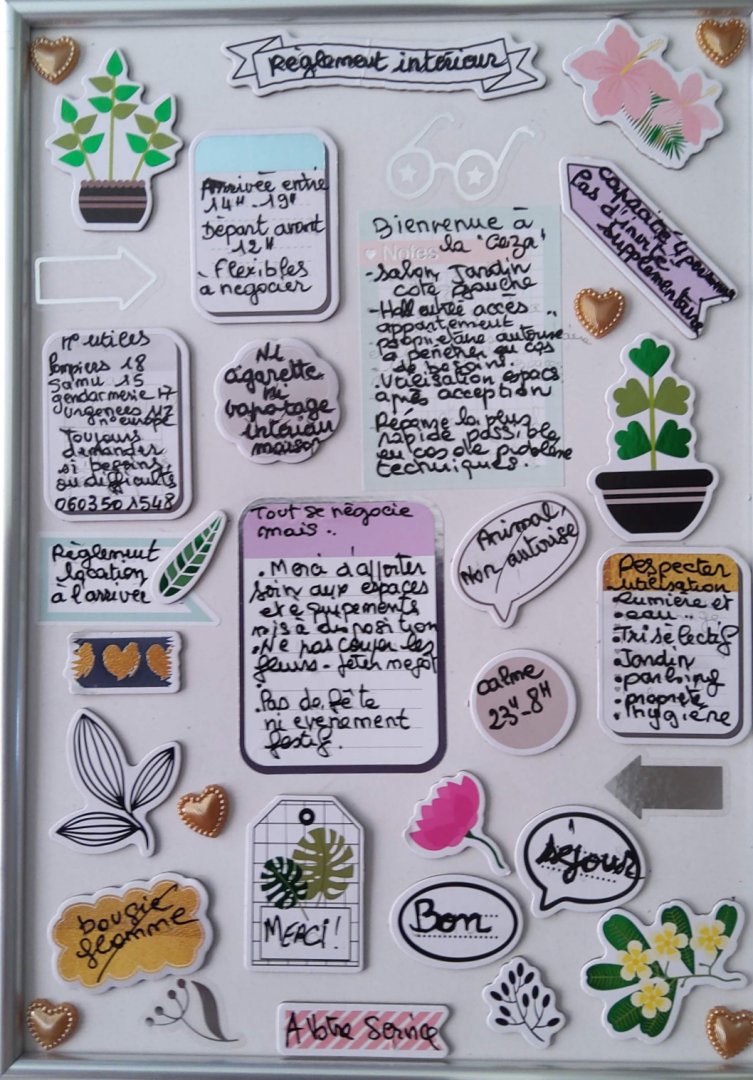 Règlement intérieur
Arrivée entre
14H - 19H
Départ avant
12H
- Flexibles
à negocier
capacité 4 personnes
Pas d'invité
supplémentaire
Bienvenue à
la "Ceza"
Notes
- Salon Jardin
coté gauche
- Hall entrée accès
appartement
propriétaire autorisé
à pénétrer en cas
de besoin.
- Utilisation espaces
après acception
- Réponse la plus
rapide possible
en cas de problème
techniques.
n° utiles
Pompiers 18
Samu 15
gendarmerie 17
urgences 112
n° europe
Toujours
demander
si besoins
ou difficultés
0603501548
Ni
cigarette
ni
vapotage
intérieur
maison
Règlement
location
à l'arrivée
Tout se négocie
mais..
• Merci d'apporter
soin aux espaces
et équipements
mis à disposition
• Ne pas couper les
fleurs - jeter mégot
• Pas de fête
ni evenement
festif.
Animal,
Non autorisé
Respecter
utilisation
• Lumière et
• eau
• Tri sélectif
• Jardin
• parking
• propreté
• hygiène
calme
23H-8H
bougie
flamme
MERCI !
séjour
Bon
A Votre Service